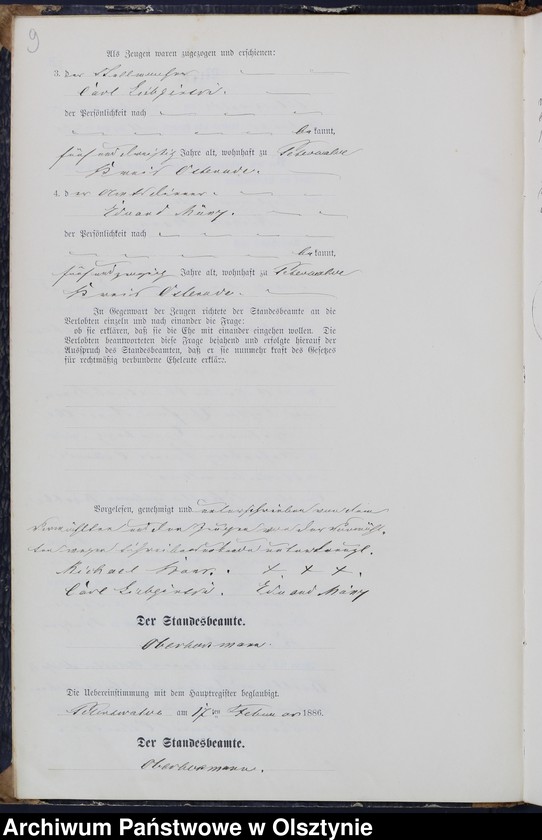 9
Als Zeugen waren zugezogen und erschienen:
3. der Stellmacher
Carl
der Persönlichkeit nach
bekannt,
fünf und dreißig Jahre alt, wohnhaft zu Peterswalde
Kreis Osterode.
4. der Amtsdiener
Eduard
der Persönlichkeit nach
bekannt,
fünfundzwanzig Jahre alt, wohnhaft zu Peterswalde
Kreis Osterode.
In Gegenwart der Zeugen richtete der Standesbeamte an die
Verlobten einzeln und nach einander die Frage:
ob sie erklären, daß sie die Ehe mit einander eingehen wollen. Die
Verlobten beantworteten diese Frage bejahend und erfolgte hierauf der
Ausspruch des Standesbeamten, daß er sie nunmehr kraft des Gesetzes
für rechtmäßig verbundene Eheleute erkläre.
Vorgelesen, genehmigt und unterschrieben von dem
Vermählten und den Zeugen von der Vermähl-
ten wegen Schreibensunkunde unterkreuzt.
Michael + + +
Carl Eduard
Der Standesbeamte.
Die Uebereinstimmung mit dem Hauptregister beglaubigt.
Peterswalde am 17ten Februar 1886.
Der Standesbeamte.
Archiwum Państwowe w Olsztynie